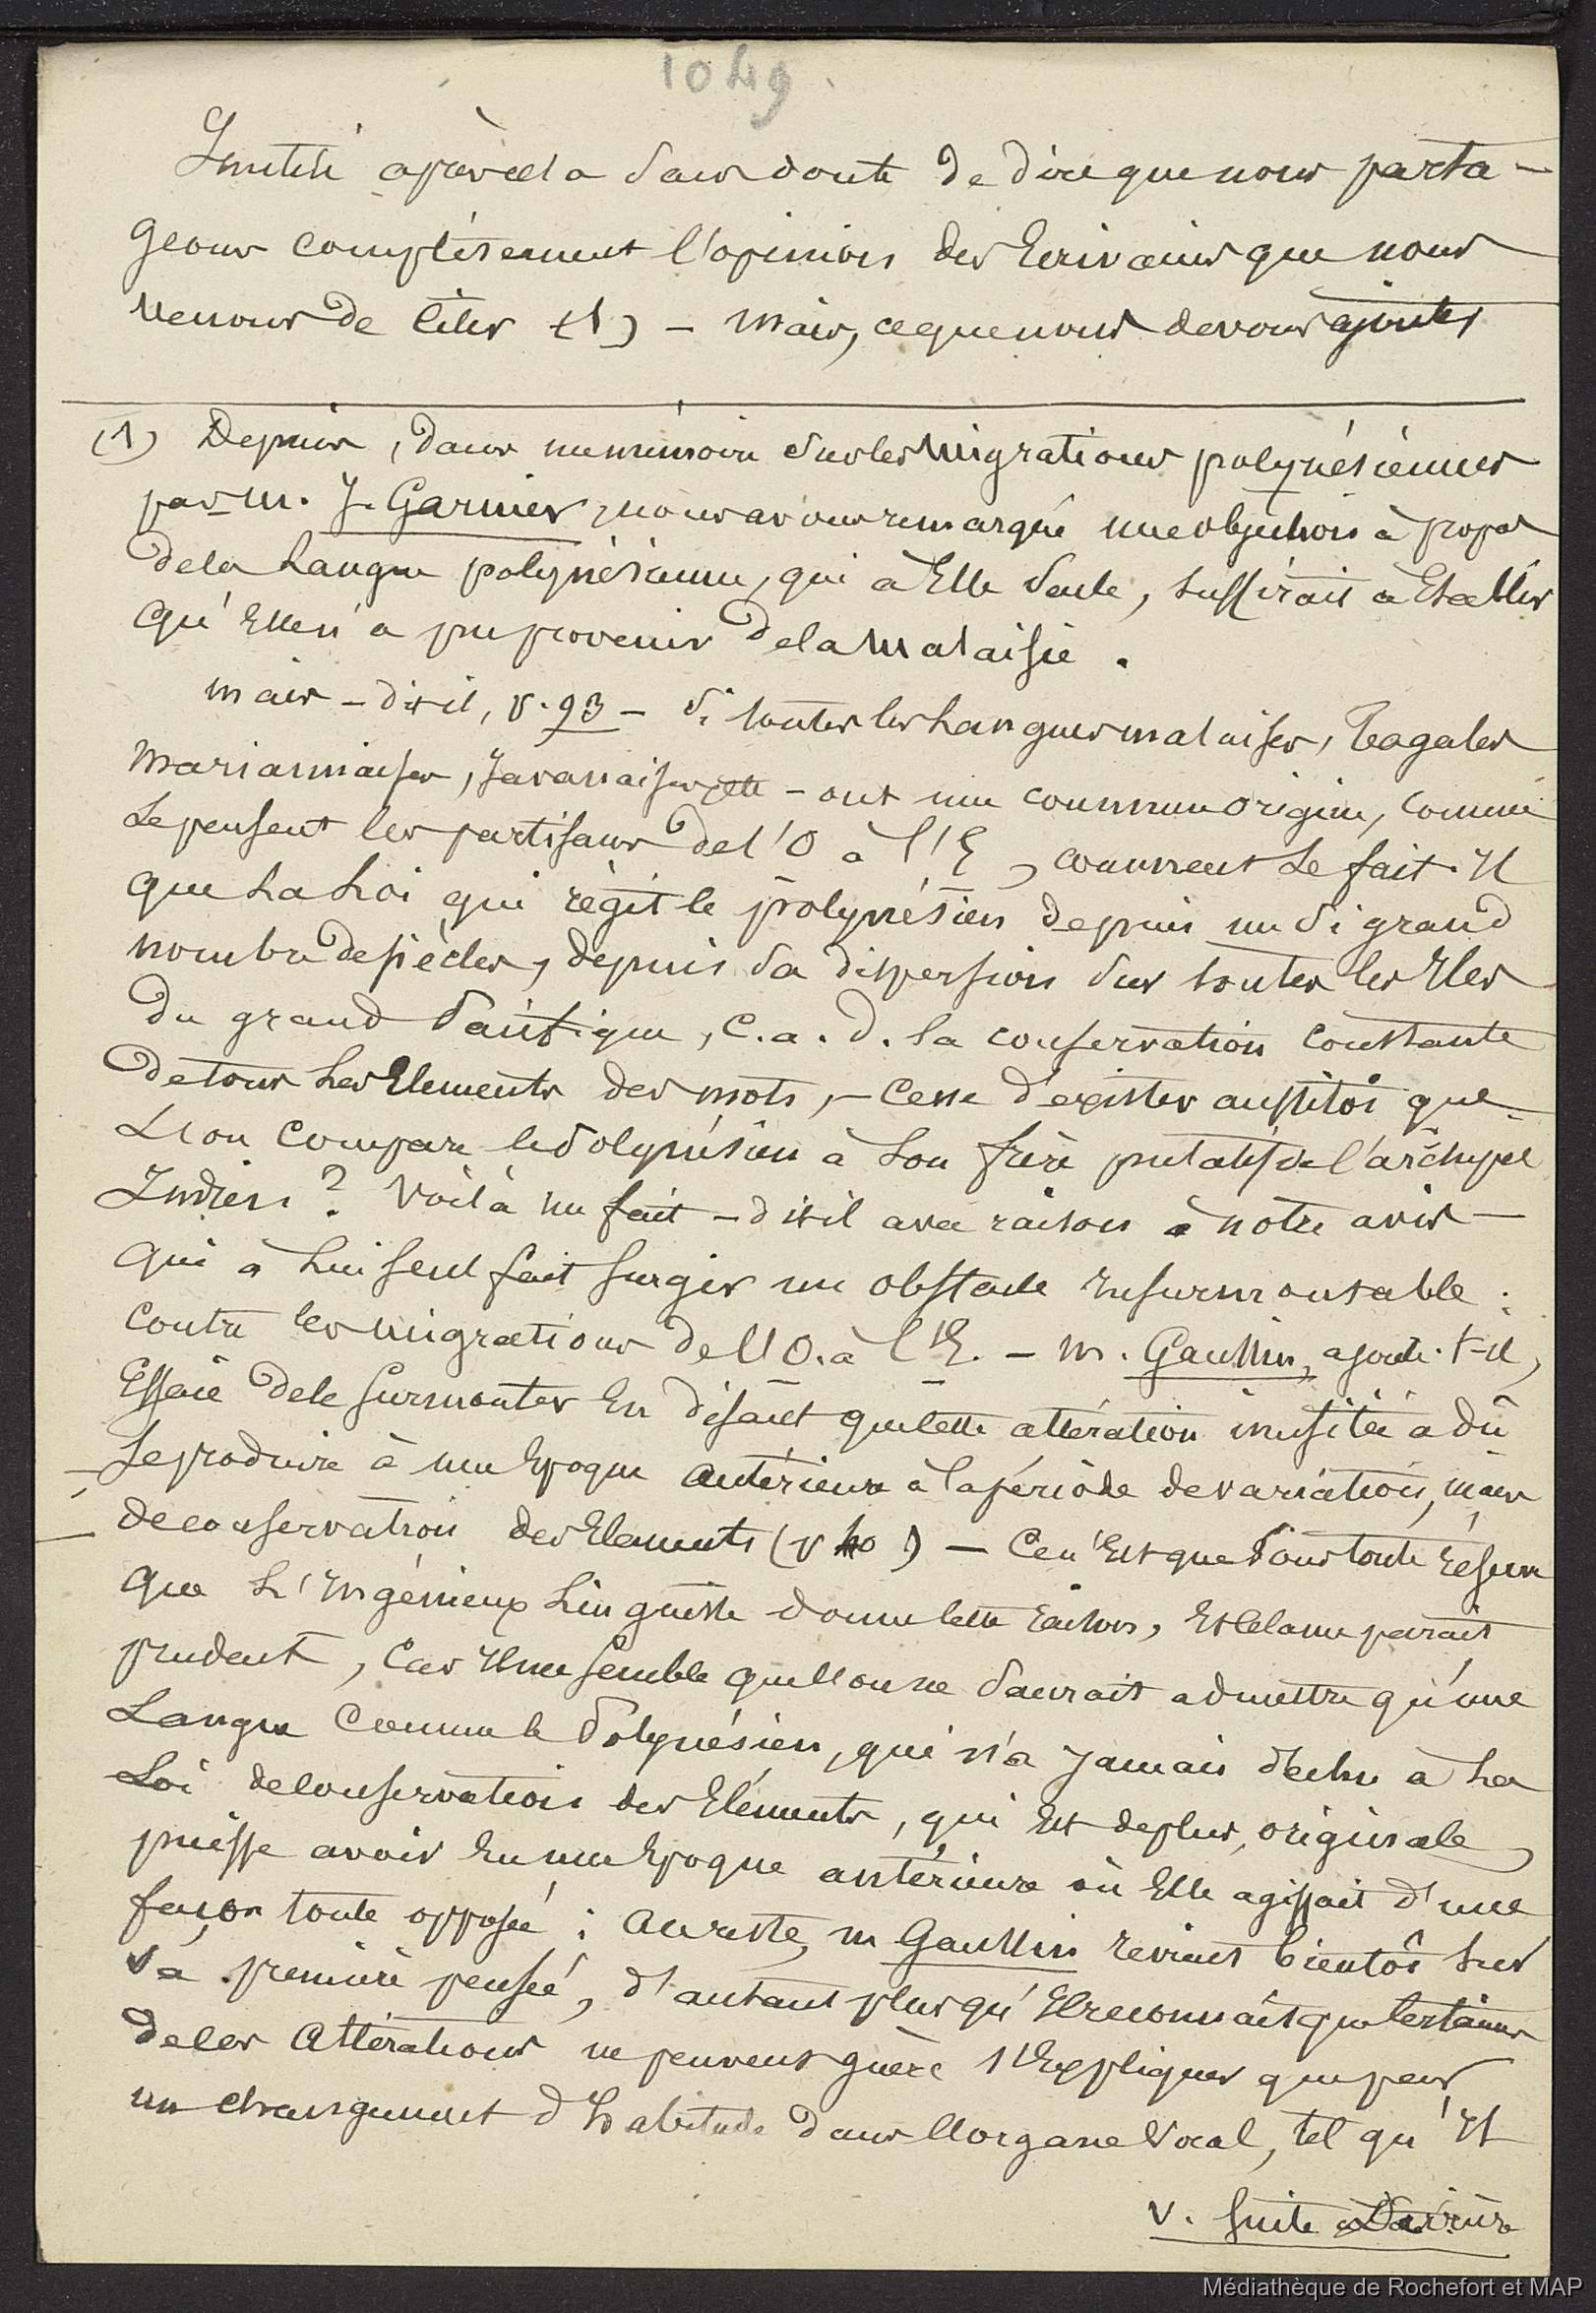 1049
Inutile après cela sans doute de dire que nous parta-
geons complètement l'opinion des Ecrivains que nous
venons de citer (1) - mais, ce que nous devons ajouter
(1) Depuis, dans un mémoire sur les migrations polynésiennes
par M. J. Garnier, nous avons remarqué une objection à propos
de la Langue polynésienne, qui à Elle seule, suffirait à Etablir
qu'Elle n'a pu provenir de la Malaisie.
mais - dit-il, p. 93 - si toutes les Langues malaises, Tagales
Mariannaises, Javanaises, etc - ont une commune origine, comme
Le pensent les partisans de l'O à l'E, comment se fait-il
que La Loi qui régit le polynésien depuis un si grand
nombre de siècles, depuis sa dispersion sur toutes les Iles
du grand Pacifique, c.a.d. la conservation constante
de tous Les Elements des mots, - cesse d'exister aussitôt que
L'on compare le Polynésien à son frère putatif de l'archipel
Indien? Voilà un fait - dit-il avec raison à notre avis -
qui à Lui seul fait surgir un obstacle Insurmontable :
contre les migrations de l'O. à l'E. - M. Gaussin, ajoute-t-il,
Essaie de le surmonter En disant que cette altération inusitée a dû
se produire à une Epoque antérieure à la période de variation, mais
de conservation des Elements (p 40) - Ce n'Est que sous toute réserve
que L'Ingénieux Linguiste donne cette raison, Et cela me parait
prudent, car Il me semble que l'on ne saurait admettre qu'une
Langue comme le Polynésien, qui n'a Jamais déchu à La
Loi de conservation des Eléments, qui Est de plus, originale,
puisse avoir Eu une Epoque antérieure où Elle agissait d'une
façon toute opposée : Au reste, M Gaussin revient bientôt sur
sa première pensée, d'autant plus qu'Il reconnaît que certaines
de ces altérations ne peuvent guère s'Expliquer que par
un changement d'habitude dans l'organe Vocal, tel qu'Il
V. suite Derrière
Médiathèque de Rochefort et MAP